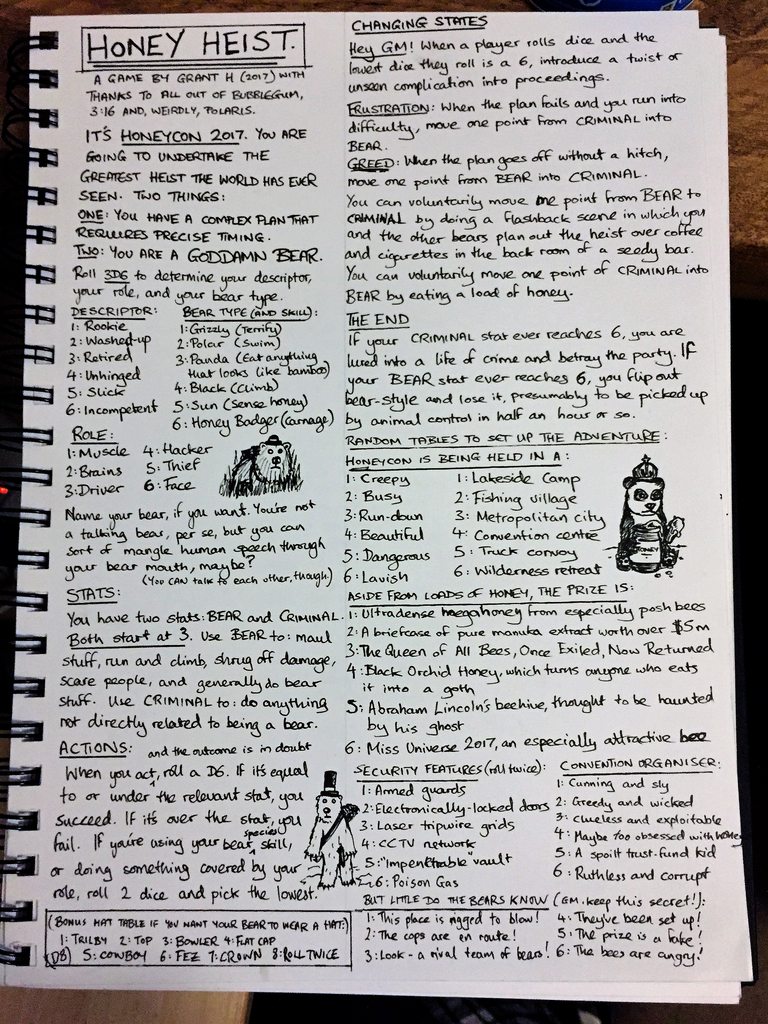 HONEY HEIST.
A GAME BY GRANT H (2017) WITH
THANKS TO ALL OUT OF BUBBLEGUM,
3:16 AND, WEIRDLY, POLARIS.
IT'S HONEYCON 2017. YOU ARE
GOING TO UNDERTAKE THE
GREATEST HEIST THE WORLD HAS EVER
SEEN. TWO THINGS:
ONE: YOU HAVE A COMPLEX PLAN THAT
REQUIRES PRECISE TIMING.
TWO: YOU ARE A GODDAMN BEAR.
Roll 3D6 to determine your descriptor,
your role, and your bear type.
DESCRIPTOR:
1: Rookie
2: Washed-up
3: Retired
4: Unhinged
5: Slick
6: Incompetent
BEAR TYPE (AND SKILL):
1: Grizzly (Terrify)
2: Polar (Swim)
3: Panda (Eat anything
that looks like bamboo)
4: Black (Climb)
5: Sun (Sense honey)
6: Honey Badger (carnage)
ROLE:
1: Muscle 4: Hacker
2: Brains 5: Thief
3: Driver 6: Face
Name your bear, if you want. You're not
a talking bear, per se, but you can
sort of mangle human speech through
your bear mouth, maybe?
(You CAN talk to each other, though.)
STATS:
You have two stats: BEAR and CRIMINAL.
Both start at 3. Use BEAR to: maul
stuff, run and climb, shrug off damage,
scare people, and generally do bear
stuff. Use CRIMINAL to: do anything
not directly related to being a bear.
ACTIONS: and the outcome is in doubt
When you act, roll a D6. If it's equal
to or under the relevant stat, you
succeed. If it's over the stat, you
fail. If you're using your bear species skill,
or doing something covered by your
role, roll 2 dice and pick the lowest.
(BONUS HAT TABLE IF YOU WANT YOUR BEAR TO WEAR A HAT:)
1: TRILBY 2: TOP 3: BOWLER 4: FLAT CAP
(D8) 5: COWBOY 6: FEZ 7: CROWN 8: ROLL TWICE
CHANGING STATES
Hey GM! When a player rolls dice and the
lowest dice they roll is a 6, introduce a twist or
unseen complication into proceedings.
FRUSTRATION: When the plan fails and you run into
difficulty, move one point from CRIMINAL into
BEAR.
GREED: When the plan goes off without a hitch,
move one point from BEAR into CRIMINAL.
You can voluntarily move one point from BEAR to
CRIMINAL by doing a flashback scene in which you
and the other bears plan out the heist over coffee
and cigarettes in the back room of a seedy bar.
You can voluntarily move one point of CRIMINAL into
BEAR by eating a load of honey.
THE END
If your CRIMINAL stat ever reaches 6, you are
lured into a life of crime and betray the party. If
your BEAR stat ever reaches 6, you flip out
bear-style and lose it, presumably to be picked up
by animal control in half an hour or so.
RANDOM TABLES TO SET UP THE ADVENTURE:
HONEYCON IS BEING HELD IN A:
1: Creepy 1: Lakeside Camp
2: Busy 2: Fishing village
3: Run-down 3: Metropolitan city
4: Beautiful 4: Convention centre
5: Dangerous 5: Truck convoy
6: Lavish 6: Wilderness retreat
HONEY
ASIDE FROM LOADS OF HONEY, THE PRIZE IS:
1: Ultradense megahoney from especially posh bees
2: A briefcase of pure manuka extract worth over $5m
3: The Queen of All Bees, Once Exiled, Now Returned
4: Black Orchid Honey, which turns anyone who eats
it into a goth
5: Abraham Lincoln's beehive, thought to be haunted
by his ghost
6: Miss Universe 2017, an especially attractive bee
SECURITY FEATURES (roll twice):
1: Armed guards
2: Electronically-locked doors
3: Laser tripwire grids
4: CCTV network
5: "Impenetrable" vault
6: Poison Gas
CONVENTION ORGANISER:
1: Cunning and sly
2: Greedy and wicked
3: Clueless and exploitable
4: Maybe too obsessed with honey
5: A spoilt trust-fund kid
6: Ruthless and corrupt
BUT LITTLE DO THE BEARS KNOW (GM: keep this secret!):
1: This place is rigged to blow! 4: They've been set up!
2: The cops are en route! 5: The prize is a fake!
3: Look - a rival team of bears! 6: The bees are angry!